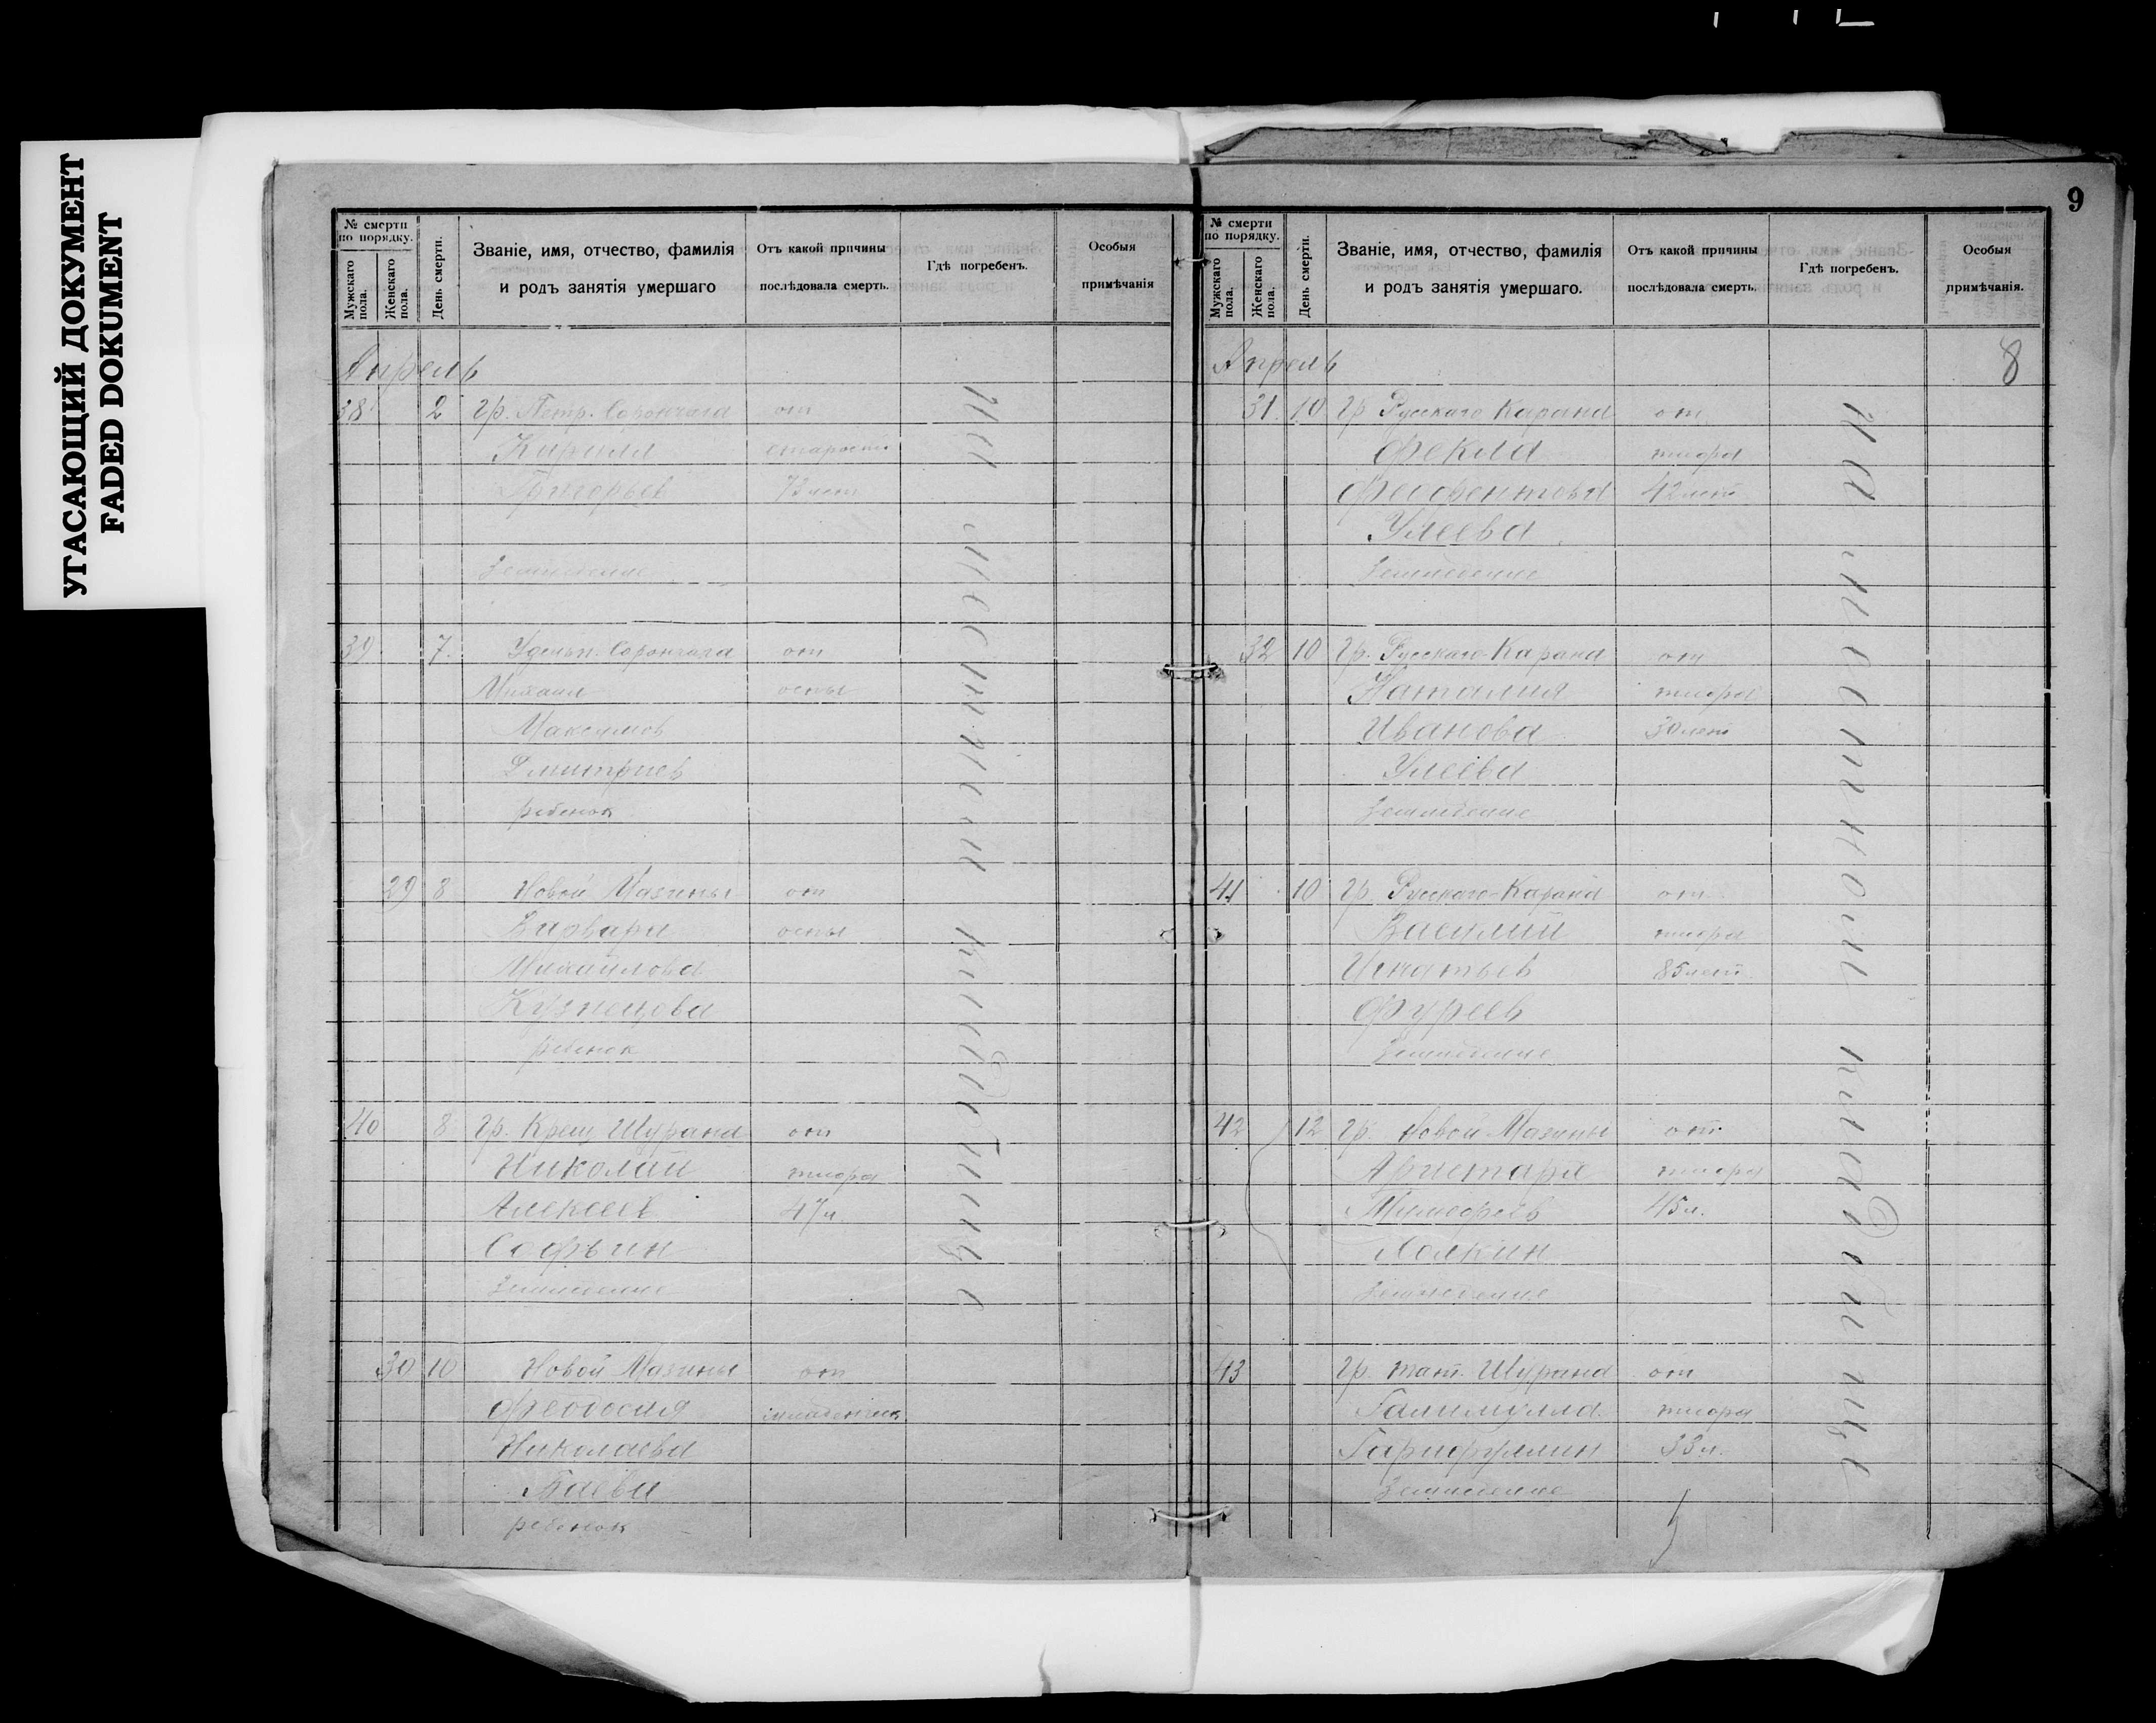 УГАСАЮЩИЙ ДОКУМЕНТ
FADED DOKUMENT
№ смерти по порядку.
Мужскаго пола.
Женскаго пола.
День смерти.
Званіе, имя, отчество, фамилія
и родъ занятія умершаго
Отъ какой причины
послѣдовала смерть.
Гдѣ погребенъ.
Особыя
примѣчанія
Апрель
38 2 Гр. Петр. Сорончага от
Кирилл старости
Григорьев 73 лет
Земледелие
39 7. Удельн. Сорончага от
Михаил оспы
Максимов
Дмитриев
ребенок
29 8 Новой Мазины от
Варвара оспы
Михайлова
Кузнецова
ребенок
40 8 Гр. Крещ Шурана от
Николай тифа
Алексеев 47 л.
Софьин
Земледелие
30 10 Новой Мазины от
Феодосия
Николаева
ребенок
На местном кладбище
9
№ смерти по порядку.
Мужскаго пола.
Женскаго пола.
День смерти.
Званіе, имя, отчество, фамилія
и родъ занятія умершаго.
Отъ какой причины
послѣдовала смерть.
Гдѣ погребенъ.
Особыя
примѣчанія.
Апрель 8
31. 10 Гр Русскаго Карана от
Фекла тифа
42 лет
Улеева
Земледелие
32 10 Гр. Русскаго-Карана от
Наталия тифа
Иванова 30 лет
Улеева
Земледелие
41 10 Гр. Русскаго-Карана от
Василий тифа
Игнатьев 85 лет
Фуреев
Земледелие
42 12 Гр. Новой Мазины от
Аристарх тифа
Тимофеев 45 л.
Земледелие
43 Гр. тат. Шурана от
Галимулла тифа
Гарифуллин 33 л.
Земледелие
На местном кладбище